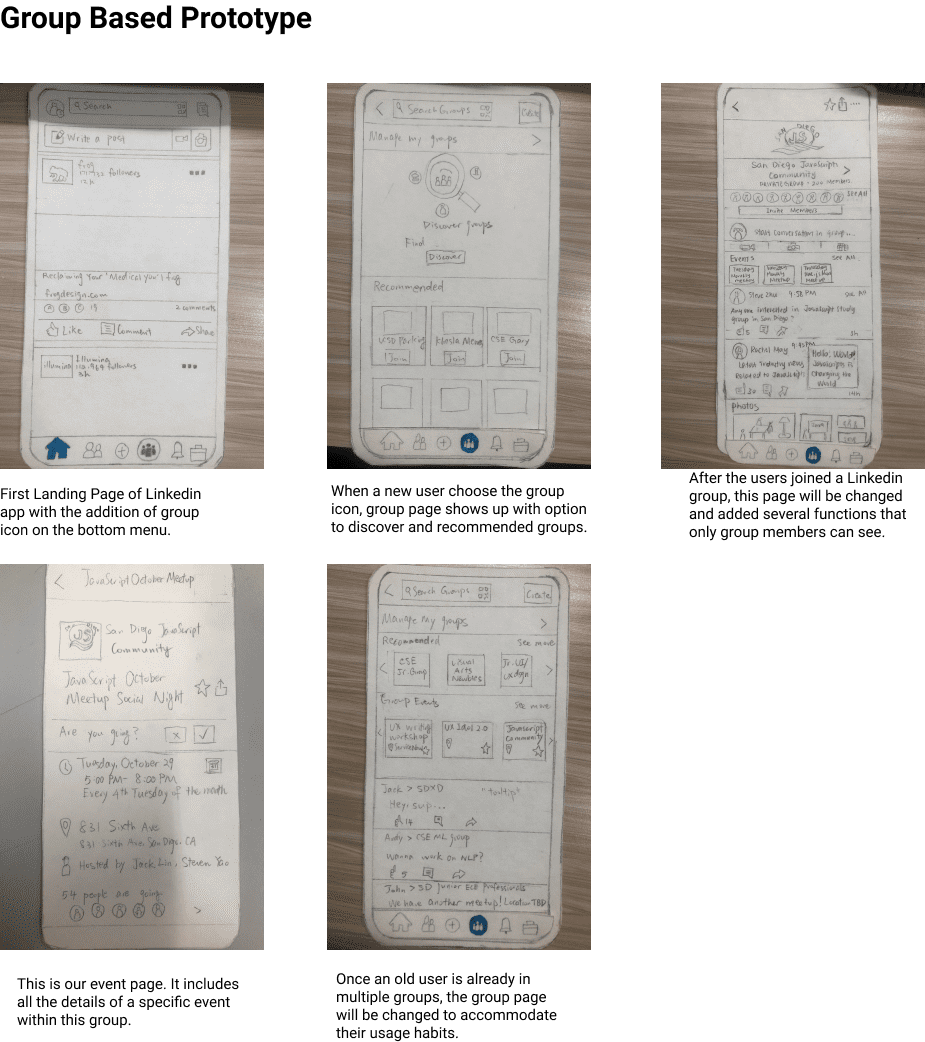 Group Based Prototype
Search
Write a post
frog
followers
12h
Reclaiming Your 'Medical you' | frog
frogdesign.com
15
2 comments
Like
Comment
Share
illumina
Illumina
followers
3h
First Landing Page of Linkedin
app with the addition of group
icon on the bottom menu.
Search Groups
Create
Manage my groups
Discover groups
Find
Discover
Recommended
USD Parking
Khosla Meme
CSE Gary
Join
Join
Join
When a new user choose the group
icon, group page shows up with option
to discover and recommended groups.
SAN DIEGO
JS
San Diego JavaScripts
Community
PRIVATE GROUP - 204 Members
See All
Invite Members
Start conversation in group...
Events
See All
Tuesday
Monthly
meeting
Tuesday
Monthly
Meetup
Thursday
Meetup
Steve Zhao 4:58 PM
Anyone interested in Javascript Study
group in San Diego?
5
3h
Rachel May 9:45PM
Latest Industry news
Related to JavaScript:
Hello, World
JavaScripts is
Changing the
World
19h
Photos
After the users joined a Linkedin
group, this page will be changed
and added several functions that
only group members can see.
JavaScript October Meetup
JS
San Diego JavaScript
Community
JavaScript October
Meetup Social Night
Are you going?
Tuesday, October 29
5:00 PM- 8:00 PM
Every 4th Tuesday of the month
831 Sixth Ave
831 Sixth Ave San Diego, CA
Hosted by Jack Lin, Steven Yoo
54 people are going
This is our event page. It includes
all the details of a specific event
within this group.
Search Groups
Create
Manage my groups
Recommended
See more
CSE
Jr. Group
Visual
Arts
Newbies
Jr. UI/
UX dsgn
Group Events
See more
UX writing
workshop
UX
2.0
Javascript
Community
Jack > SDXD
"tooltip"
Hey, sup...
14
Andy > CSE ML group
Wanna work on NLP?
5
John > SD Junior ECE Professionals
We have another meetup! Location TBD
Once an old user is already in
multiple groups, the group page
will be changed to accommodate
their usage habits.